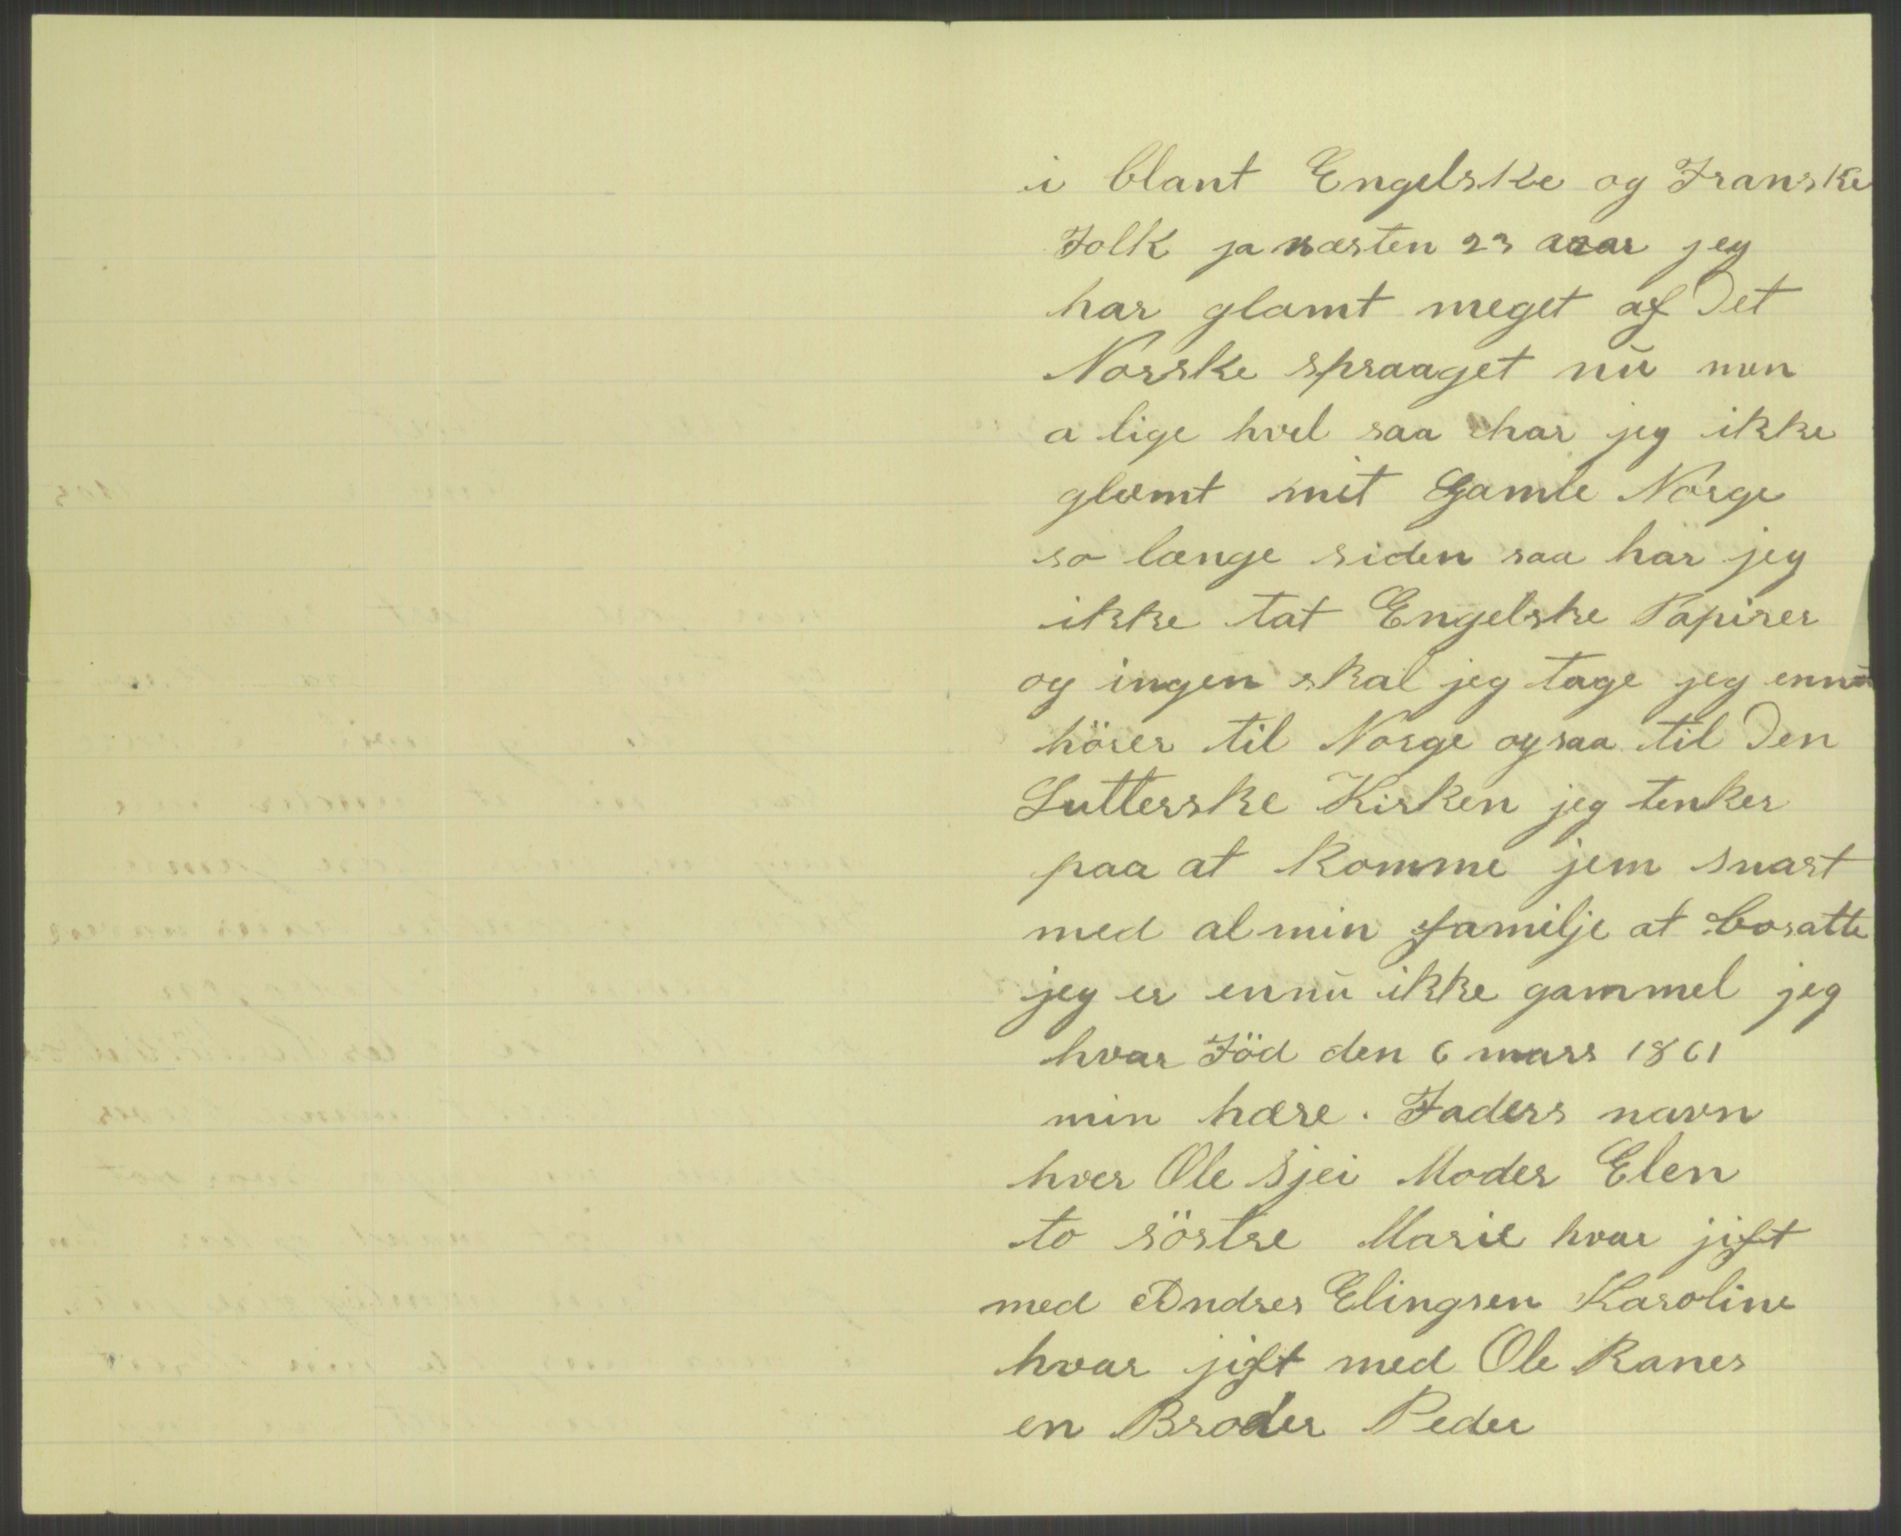 i blant Engelske og Franske
Folk ja næsten 23 aaar jeg
har glamt meget af Det
Norske spraaget nŭ men
a lige hvel saa har jeg ikke
glemt mit Gamle Norge
so længe siden saa har jeg
ikke tat Engelske Papirer
og ingen skal jeg tage jeg ennŭ
hörer til Norge ogsaa til Den
Lutterske Kirken jeg tenker
paa at komme jem snart
med al min familje at bosatte
jeg er ennŭ ikke gammel jeg
hvar Föd den 6 mars 1861
min hære. Faders navn
hver Ole Sjei Moder Elen
to söstre Marie hvar jift
med Andres Elingsen Karoline
hvar jift med Ole Raner
en Broder Peder